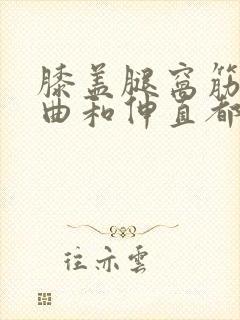 膝盖腿窝筋
曲和伸直都
往亦雲